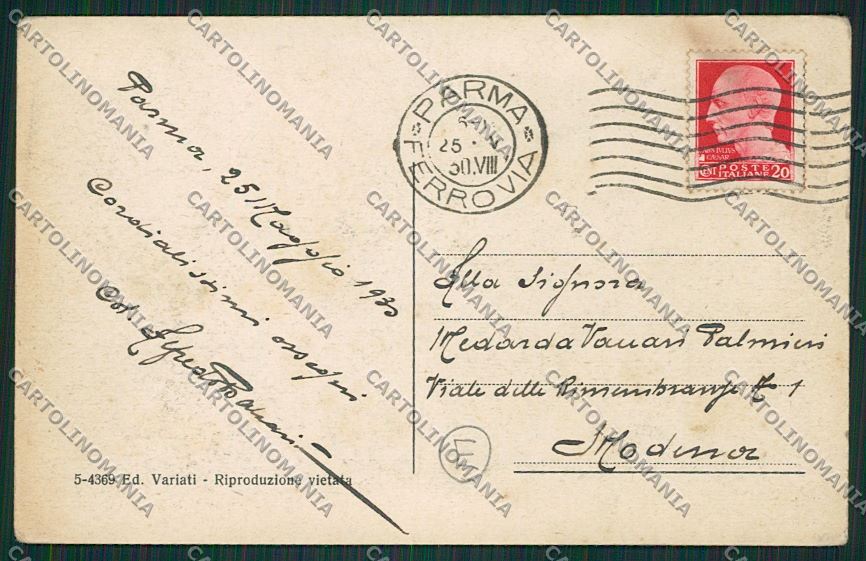 Parma, 25 Maggio 1930
Cordialissimi ossequi
Alfredo
5-4369 Ed. Variati - Riproduzione vietata
PARMA
FERROVIA
25
30.VIII
IVLIVS
CAESAR
CENT POSTE
ITALIANE 20
Alla Signora
Medarda Vaccari Palmieri
Viale delle Rimembranze N. 1
Modena
CARTOLINOMANIA